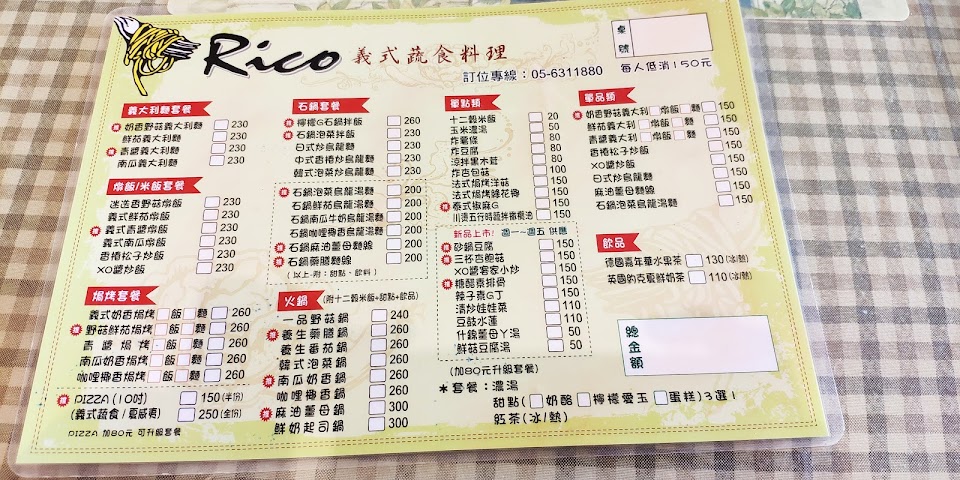 Rico 義式蔬食料理
訂位專線：05-6311880
桌號
每人低消150元
義大利麵套餐
推 奶香野菇義大利麵 230
鮮茄義大利麵 230
推 青醬義大利麵 230
南瓜義大利麵 230
燉飯/米飯套餐
迷迭香野菇燉飯 230
義式鮮茄燉飯 230
推 義式青醬燉飯 230
義式南瓜燉飯 230
香椿松子炒飯 230
XO醬炒飯 230
焗烤套餐
義式奶香焗烤 飯 麵 260
推 野菇鮮茄焗烤 飯 麵 260
青醬焗烤 飯 麵 260
南瓜奶香焗烤 飯 麵 260
咖哩椰香焗烤 飯 麵 260
推 PIZZA (10吋) 150(半份)
(義式蔬食/夏威夷) 250(全份)
PIZZA 加80元 可升級套餐
石鍋套餐
推 檸檬G石鍋拌飯 260
推 石鍋泡菜拌飯 200
日式炒烏龍麵 200
中式香椿炒烏龍麵 200
韓式泡菜炒烏龍麵 200
推 石鍋泡菜烏龍湯麵 200
石鍋鮮茄烏龍湯麵 200
石鍋南瓜牛奶烏龍湯麵 200
石鍋咖哩椰香烏龍湯麵 200
推 石鍋麻油薑母麵線 200
推 石鍋藥膳麵線 200
(以上-附：甜點、飲料)
火鍋 (附十二穀米飯+甜點+飲品)
一品野菇鍋 240
推 養生藥膳鍋 260
養生番茄鍋 260
韓式泡菜鍋 260
推 南瓜奶香鍋 260
咖哩椰香鍋 260
推 麻油薑母鍋 300
鮮奶起司鍋 300
單點類
十二穀米飯 20
玉米濃湯 50
炸薯條 80
炸豆腐 80
涼拌黑木耳 80
炸杏包菇 100
法式焗烤洋菇 150
法式焗烤綠花椰 150
推 泰式椒麻G 150
川燙五行時蔬拌橄欖油 150
新品上市! 週一~週五 供應
推 砂鍋豆腐 150
推 三杯杏鮑菇 150
XO醬客家小炒 150
推 糖醋素排骨 150
辣子素G丁 150
清炒娃娃菜 110
豆豉水蓮 110
什錦薑母丫湯 50
鮮菇豆腐湯 50
(加80元升級套餐)
＊套餐：濃湯
甜點( 奶酪 檸檬愛玉 蛋糕)3選1
紅茶(冰/熱)
單品類
推 奶香野菇義大利 燉飯 麵 150
鮮茄義大利 燉飯 麵 150
推 青醬義大利 燉飯 麵 150
香椿松子炒飯 150
XO醬炒飯 150
日式炒烏龍麵 150
麻油薑母麵線 150
石鍋泡菜烏龍湯麵 150
飲品
德國嘉年華水果茶 130(冰/熱)
英國約克夏鮮奶茶 110(冰/熱)
總金額